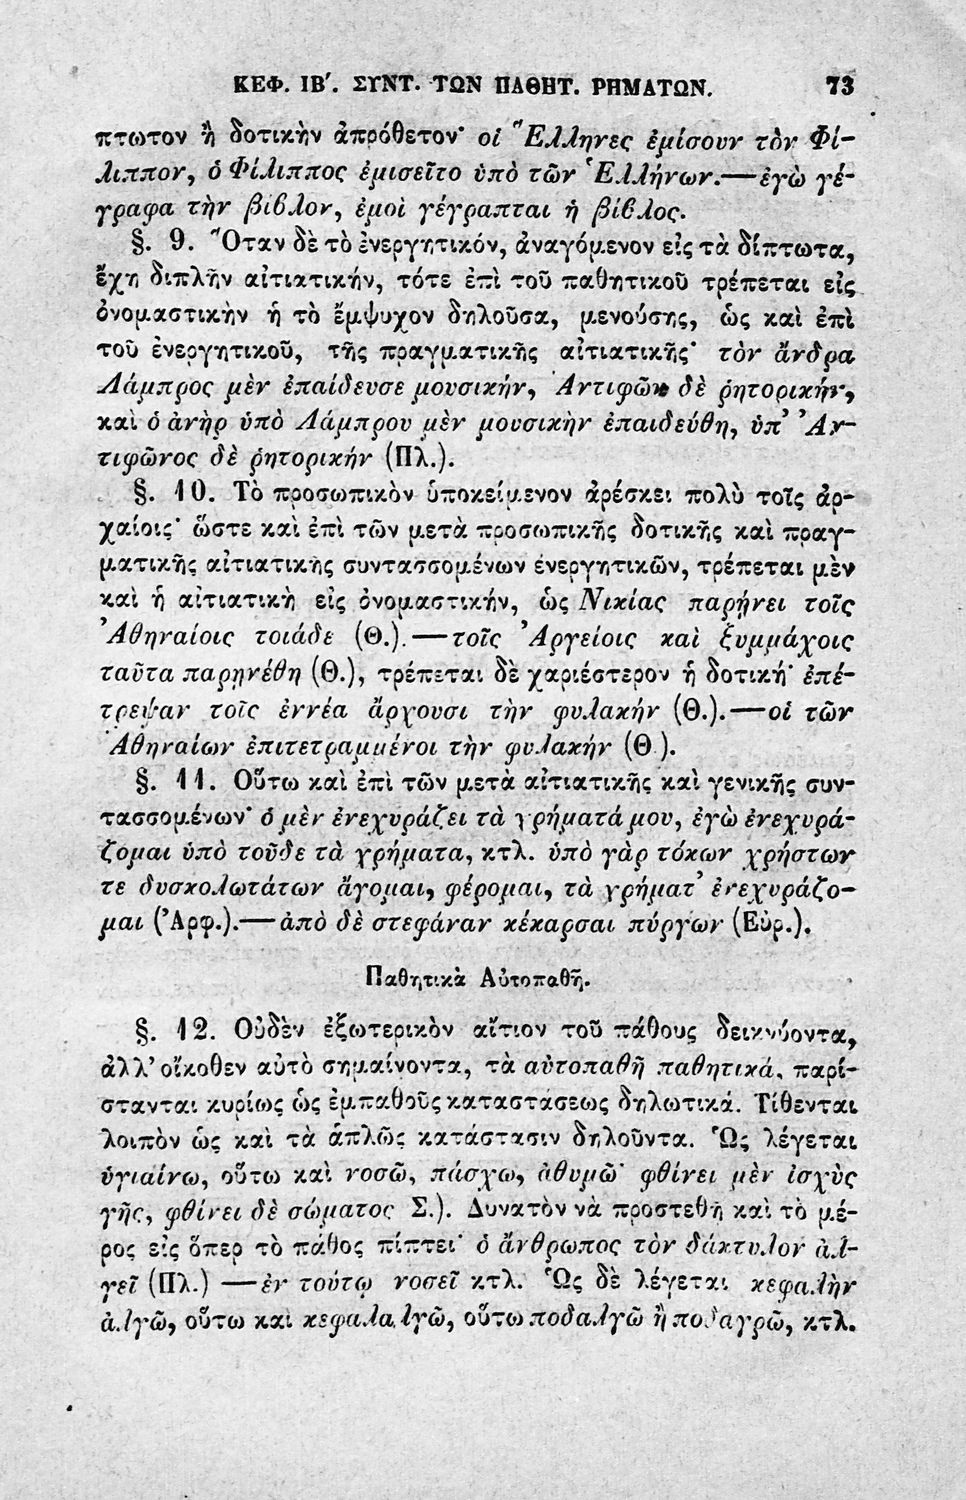 ΚΕΦ. ΙΒ′. ΣΥΝΤ. ΤΩΝ ΠΑΘΗΤ. ΡΗΜΑΤΩΝ. 73
πτωτον ἢ δοτικὴν ἀπρόθετον· οἱ Ἕλληνες ἐμίσουν τὸν Φί-
λιππον, ὁ Φίλιππος ἐμισεῖτο ὑπὸ τῶν Ἑλλήνων.—ἐγὼ γέ-
γραφα τὴν βίβλον, ἐμοὶ γέγραπται ἡ βίβλος.
§. 9. Ὅταν δὲ τὸ ἐνεργητικόν, ἀναγόμενον εἰς τὰ δίπτωτα,
ἔχῃ διπλῆν αἰτιατικήν, τότε ἐπὶ τοῦ παθητικοῦ τρέπεται εἰς
ὀνομαστικὴν ἡ τὸ ἔμψυχον δηλοῦσα, μενούσης, ὡς καὶ ἐπὶ
τοῦ ἐνεργητικοῦ, τῆς πραγματικῆς αἰτιατικῆς· τὸν ἄνδρα
Λάμπρος μὲν ἐπαίδευσε μουσικήν, Ἀντιφῶν δὲ ῥητορικήν,
καὶ ὁ ἀνὴρ ὑπὸ Λάμπρου μὲν μουσικὴν ἐπαιδεύθη, ὑπ’ Ἀν-
τιφῶνος δὲ ῥητορικήν (Πλ.).
§. 10. Τὸ προσωπικὸν ὑποκείμενον ἀρέσκει πολὺ τοῖς ἀρ-
χαίοις· ὥστε καὶ ἐπὶ τῶν μετὰ προσωπικῆς δοτικῆς καὶ πραγ-
ματικῆς αἰτιατικῆς συντασσομένων ἐνεργητικῶν, τρέπεται μὲν
καὶ ἡ αἰτιατικὴ εἰς ὀνομαστικήν, ὡς Νικίας παρῄνει τοῖς
Ἀθηναίοις τοιάδε (Θ.).—τοῖς Ἀργείοις καὶ ξυμμάχοις
ταῦτα παρῃνέθη (Θ.), τρέπεται δὲ χαριέστερον ἡ δοτική· ἐπέ-
τρεψαν τοῖς ἐννέα ἄρχουσι τὴν φυλακήν (Θ.).—οἱ τῶν
Ἀθηναίων ἐπιτετραμμένοι τὴν φυλακήν (Θ.).
§. 11. Οὕτω καὶ ἐπὶ τῶν μετὰ αἰτιατικῆς καὶ γενικῆς συν-
τασσομένων· ὁ μὲν ἐνεχυράζει τὰ χρήματά μου, ἐγὼ ἐνεχυρά-
ζομαι ὑπὸ τοῦδε τὰ χρήματα, κτλ. ὑπὸ γὰρ τόκων χρήστων
τε δυσκολωτάτων ἄγομαι, φέρομαι, τὰ χρήματ’ ἐνεχυράζο-
μαι (Ἀρφ.).—ἀπὸ δὲ στεφάναν κέκαρσαι πύργων (Εὐρ.).
Παθητικὰ Αὐτοπαθῆ.
§. 12. Οὐδὲν ἐξωτερικὸν αἴτιον τοῦ πάθους δεικνύοντα,
ἀλλ’ οἴκοθεν αὐτὸ σημαίνοντα, τὰ αὐτοπαθῆ παθητικά, παρί-
στανται κυρίως ὡς ἐμπαθοῦς καταστάσεως δηλωτικά. Τίθενται
λοιπὸν ὡς καὶ τὰ ἁπλῶς κατάστασιν δηλοῦντα. Ὡς λέγεται
ὑγιαίνω, οὕτω καὶ νοσῶ, πάσχω, ἀθυμῶ· φθίνει μὲν ἰσχὺς
γῆς, φθίνει δὲ σώματος Σ.). Δυνατὸν νὰ προστεθῇ καὶ τὸ μέ-
ρος εἰς ὅπερ τὸ πάθος πίπτει· ὁ ἄνθρωπος τὸν δάκτυλον ἀλ-
γεῖ (Πλ.) —ἐν τούτῳ νοσεῖ κτλ. Ὡς δὲ λέγεται κεφαλὴν
ἀλγῶ, οὕτω καὶ κεφαλαλγῶ, οὕτω ποδαλγῶ ἢ ποδαγρῶ, κτλ.